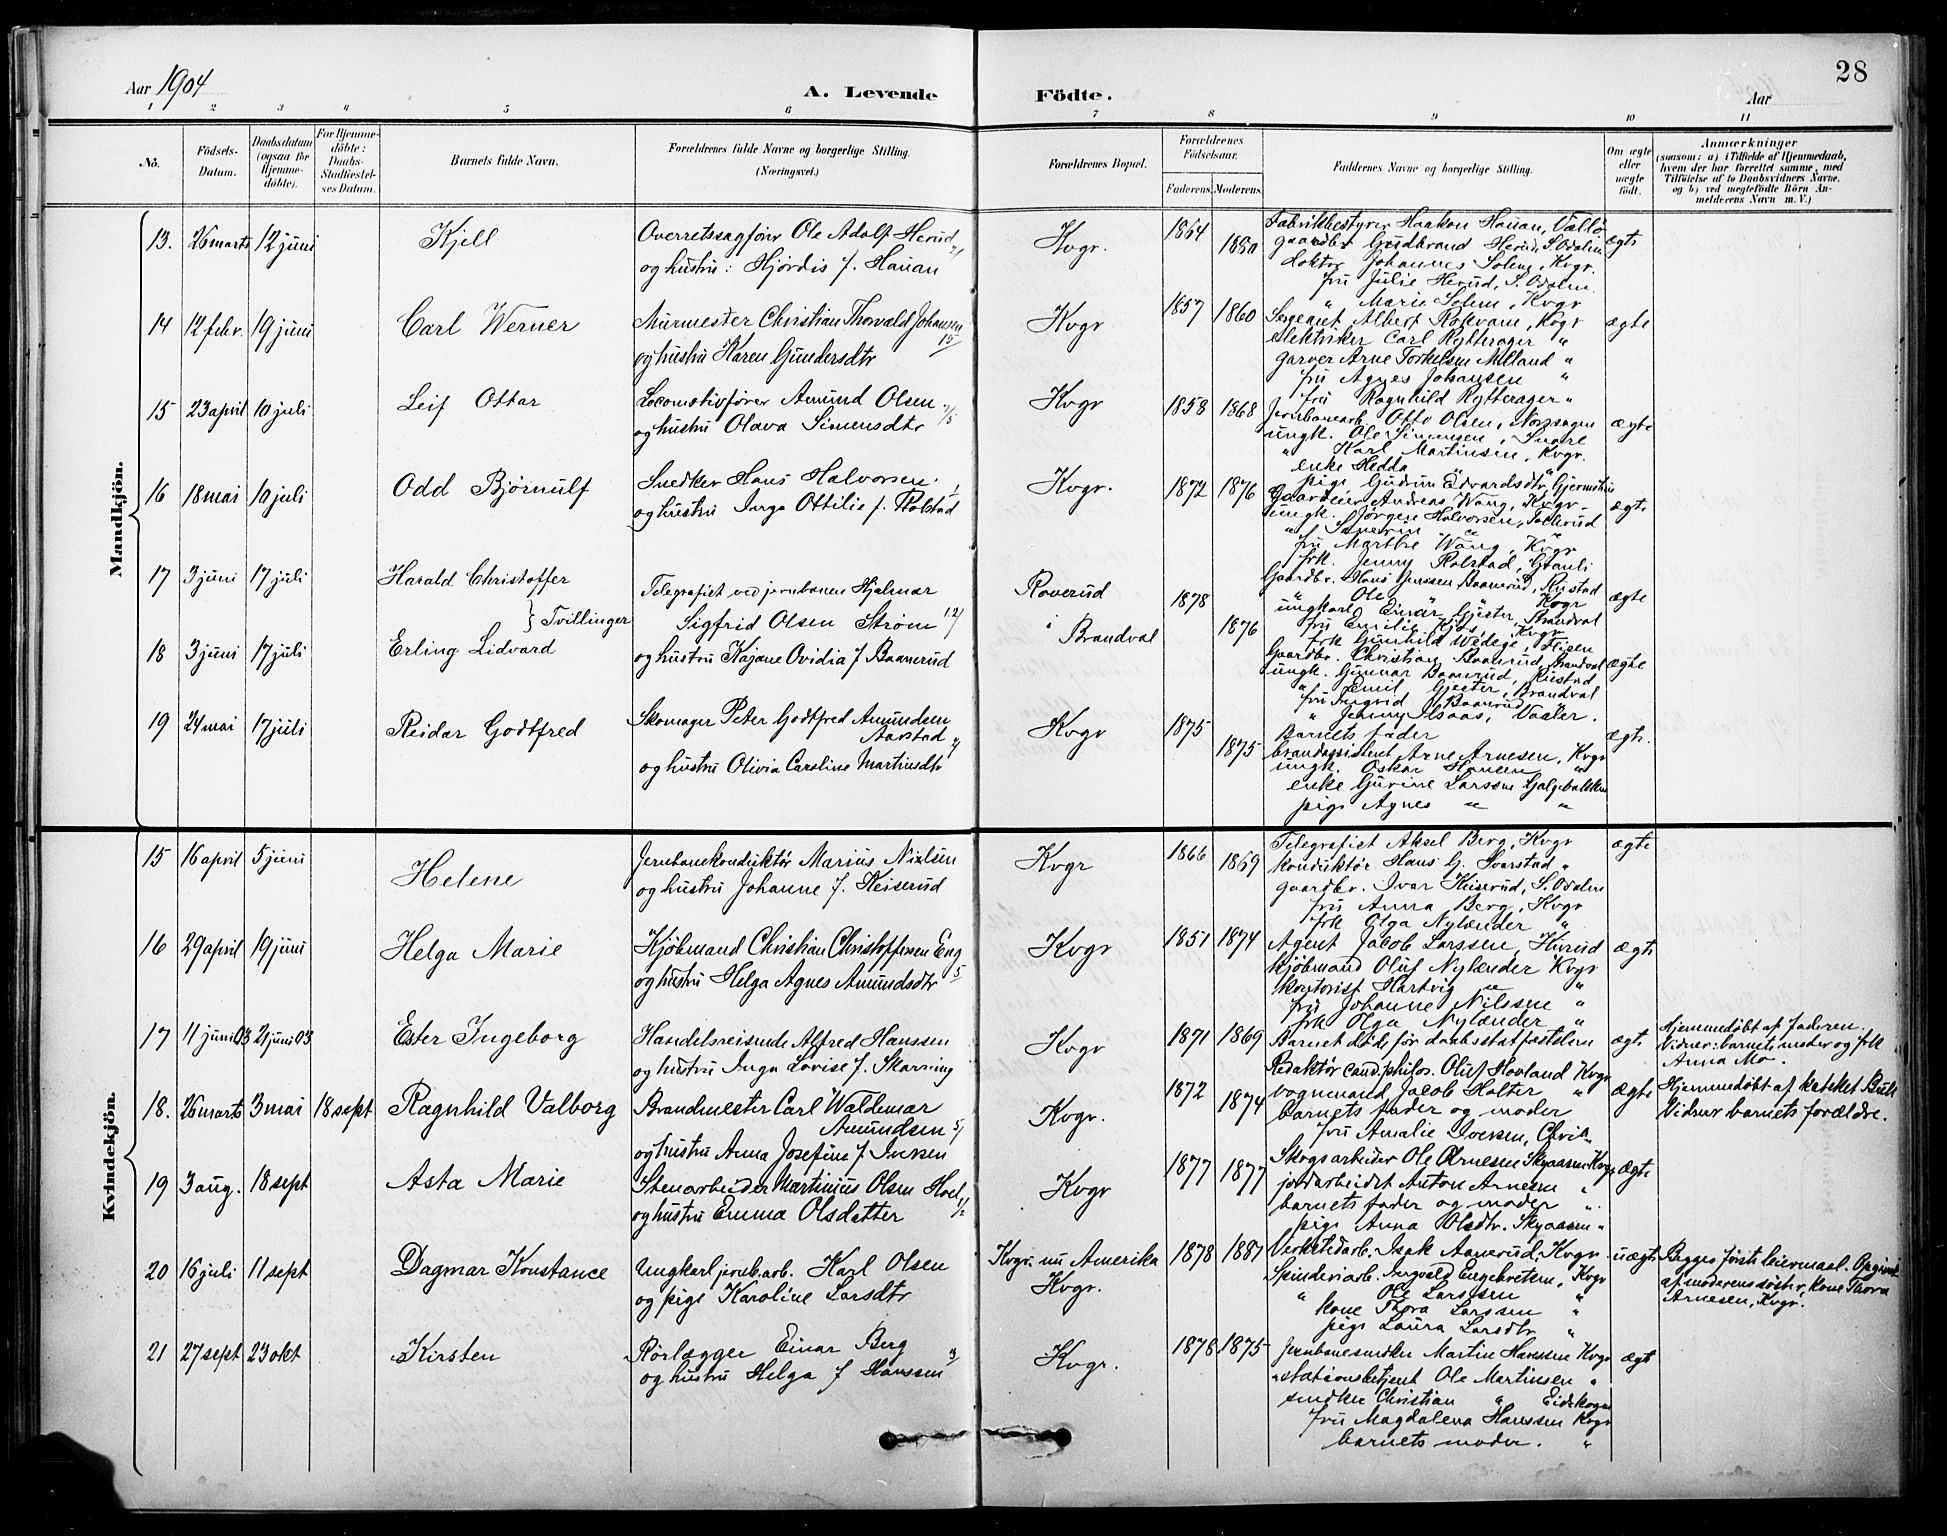 28
Aar 1904
A. Levende Födte.
Aar
1 2 3 4 5 6 7 8 9 10 11
No.
Födsels-Datum.
Daabsdatum (ogsaa for Hjemme-döbte).
For Hjemme-döbte: Daabs-Stadfæstel-ses Datum.
Barnets fulde Navn.
Forældrenes fulde Navne og borgerlige Stilling. (Næringsvei.)
Forældrenes Bopæl.
Forældrenes Födselsaar.
Faderens. Moderens.
Faddernes Navne og borgerlige Stilling.
Om ægte eller uægte födt.
Anmærkninger
(saasom: a) i Tilfælde af Hjemmedaab, hvem der har forrettet samme, med Tilföielse af to Daabsvidners Navne, og b) ved uægtefödte Börn An-melderens Navn m. V.)
Mandkjön.
13. 26 marts 12 juni Kjell
Overretssagfører Ole Adolf Herud
og hustru: Hjørdis f. Hauan
Kvgr. 1864 1880
Fabrikbestyrer Haakon Hauan, Vallø
gaardbr Gudbrand Herud, S. Odalen
doktor Johannes Solem, Kvgr.
fru Julie Herud, S. Odalen
" Marie Solem, Kvgr
ægte
14 12 febr. 19 juni Carl Werner
Murmester Christian Thorvald Johansen
og hustru Karen Gundersdtr
Kvgr 1857 1860
Sergeant Albert Rokvam, Kvgr
elektriker Carl Rytterager "
garver Arne Torkelsen Melland "
fru Agnes Johansen "
fru Ragnhild Rytterager "
ægte
15 23 april 10 juli Leif Ottar
Locomotivfører Amund Olsen
og hustru Olava Simensdtr
Kvgr 1858 1868
Jernbanearb. Otto Olsen, Norsagen
ungk. Ole Simensen,
" Karl Martinsen, Kvgr.
enke Hedda "
pige Gudrun Edvardsdtr,
ægte
16 18 mai 10 juli Odd Bjørnulf
Snedker Hans Halvorsen
og hustru Inga Ottilie f. Rolstad
Kvgr. 1872 1876
Gaardeier Andreas Wang, Kvgr
ungk. Jørgen Halvorsen,
" Severin "
fru Marthe Wang, Kvgr
frk. Jenny Rolstad, Granli
ægte
17 3 juni 17 juli Harald Christoffer
} Tvillinger
18 3 juni 17 juli Erling Lidvard
Telegrafist ved jernbanen Hjalmar
Sigfrid Olsen Strøm
og hustru Kajane Ovidia f. Baanerud
Roverud
" Brandval
1878 1876
Gaardbr. Hans Jenssen Baanerud, Riistad
" Ole " Kvgr
ungkarl Einar Gjester, Brandval
fru Emilie Kjos, Kvgr
frk Gunhild Wedege,
ægte
Gaardbr. Christian Baanrud, Brandval
ungk. Gunnar Baanrud, Riistad
" Emil Gjester, Brandval
fru Ingrid Baanrud
" Jenny Ilsaas, Vaaler.
ægte
19 24 mai 17 juli Reidar Godtfred
Skomager Peter Godtfred Amundsen
Aarstad
og hustru Olivia Caroline Martinsdtr
Kvgr 1875 1875
Barnets fader
brandassistent Arne Arnesen, Kvgr
ungk. Oskar Hansen "
enke Gurine Larssen Galgebakken
pige Agnes " "
ægte.
Kvindekjön.
15 16 april 5 juni Helene
Jernbanekonduktør Marius Nielsen
og hustru Johanne f. Keiserud
Kvgr 1866 1869
Telegrafist Aksel Berg, Kvgr
konduktør Hans G. Svarstad "
gaardbr. Ivar Keiserud, S. Odalen
fru Anna Berg, Kvgr
frk Olga Nylænder "
ægte
16 29 april 19 juni Helga Marie
Kjøbmand Christian Christoffersen Eng
og hustru Helga Agnes Amundsdtr
Kvgr 1857 1874
Agent Jacob Larssen,
kjøbmand Oluf Nylænder Kvgr
kontorist Hartvig " "
fru Johanne Nilssen "
frk Olga Nylænder "
ægte
17 11 juni 03 21 juni 03 Ester Ingeborg
Handelsreisende Alfred Hanssen
og hustru Inga Lovise f. Skarning
Kvgr 1871 1869
Barnet døde før daabsstadfæstelsen
ægte
Hjemmedøbt af faderen.
Vidner: barnets moder og frk
Anna Mo.
18. 26 marts 3 mai 18 sept Ragnhild Valborg
Brandmester Carl Waldemar
Amundsen
og hustru Anna Josefine f. Iversen
Kvgr. 1872 1874
Redaktør cand. philos. Oluf Hovland Kvgr
vognmand Jacob Holter "
barnets fader og moder
fru Amalie Iversen, Chria
ægte
Hjemmedøbt af kateket Bull
Vidner barnets forældre.
19 3 aug. 18 sept Asta Marie
Stenarbeider Martinius Olsen Hoel
og hustru Emma Olsdatter
Kvgr 1877 1877
Skogsarbeider Ole Arnesen Skyaasen Kvgr
jordarbeider Anton Arnesen "
barnets fader og moder "
pige Anna Olsdtr. Skyaasen "
ægte
20 16 juli 11 sept Dagmar Konstance
Ungkarl jernb.arb. Karl Olsen
og pige Karoline Larsdtr
Kvgr. nu Amerika
Kvgr.
1878 1881
Verkstedarb. Isak Aanerud, Kvgr
Spinderiarb. Ingvald Engebretsen, Kvgr
" Ole Larssen "
kone Thora Larssen "
pige Laura Larsdtr "
uægte
Begges første leiermaal. Opgivet
af moderens søster, kone Thora
Arnesen, Kvgr.
21 27 sept 23 okt Kirsten
Rørlægger Einar Berg
og hustru Helga f Hanssen
Kvgr. 1878 1875
Jernbanesnedker Martin Hanssen Kvgr
stationsbetjent Ole Martinsen "
snedker Christian " Eidskogen
fru Magdalena Hanssen Kvgr
barnets moder. "
ægte